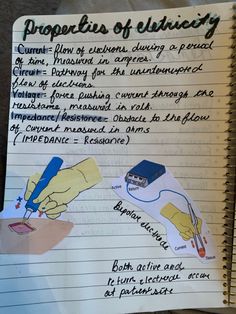 Properties of eletricity
Current = flow of electrons during a period
of time, measured in amperes.
Circuit = Pathway for the uninterrupted
flow of electrons.
Voltage = force pushing current through the
resistance, measured in volts.
Impedance/Resistance = Obstacle to the flow
of current measured in ohms
(IMPEDANCE = Resistance)
Active
Return
Bipolar electrode
Return
Current
Active
Both active and
return electrode occurs
at patient site